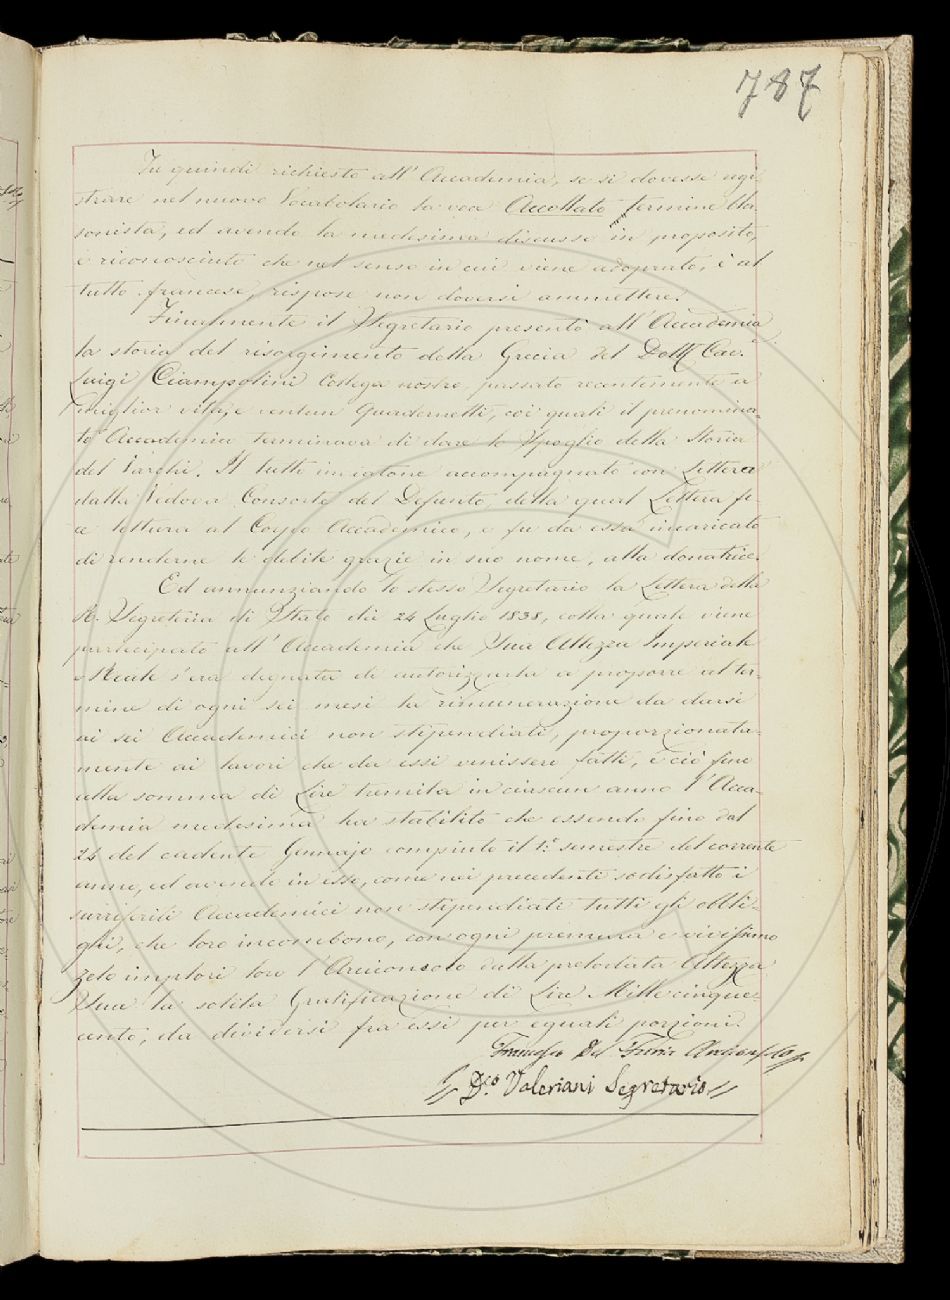 787
Fu quindi richiesto all' Accademia, se si dovesse regi-
strare nel nuovo Vocabolario la voce Accollato termine bla-
sonista, ed avendo la medesima discusso in proposito,
e riconosciuto che nel senso in cui viene adoprato, è al
tutto francese, rispose non doversi ammettere.
Finalmente il Segretario presentò all' Accademia
la storia del risorgimento della Grecia del Dott. Cav.
Luigi Ciampolini Collega nostro, passato recentemente a
miglior vita, e ventun Quadernetti, co' quali il prenomina-
to Accademico terminava di dare lo Spoglio della Storia
del Varchi. Il tutto accompagnato con Lettera
dalla Vedova Consorte del Defunto, della qual Lettera fe-
ce lettura al Corpo Accademico, e fu da esso incaricato
di renderne le debite grazie in suo nome, alla donatrice.
Ed annunziando lo stesso Segretario la Lettera della
R. Segreteria di Stato dei 24 Luglio 1838, colla quale viene
partecipato all' Accademia che Sua Altezza Imperiale
e Reale s'era degnata di autorizzarla a proporre al ter-
mine di ogni sei mesi la rimunerazione da darsi
ai sei Accademici non stipendiati, proporzionata-
mente ai lavori che da essi venissero fatti, e ciò fino
alla somma di Lire tremila in ciascun anno l' Acca-
demia medesima ha stabilito che essendo fino dal
24 del cadente Gennajo compiuto il 1.° semestre del corrente
anno, ed avendo in esso, come nei precedenti sodisfatto i
surriferiti Accademici non stipendiati tutti gli obbli-
ghi, che loro incombono, con ogni premura e vivissimo
zelo implori loro l' Arciconsolo dalla prelodata Altezza
Sua la solita Gratificazione di Lire Mille cinque-
cento, da dividersi fra essi per eguali porzioni.
Francesco Del Furia Arciconsolo
D.co Valeriani Segretario